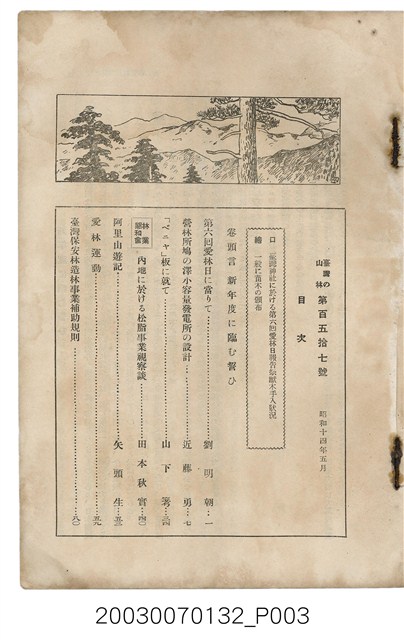 臺灣の山林 第百五拾七號
目次
昭和十四年五月
口繪
臺灣神社に於ける第六回愛林日報告祭獻木手入狀況
一般に苗木の頒布
卷頭言 新年度に臨む誓ひ
第六回愛林日に當りて 劉明朝 一
營林所鳩の澤小容量發電所の設計 近藤勇 七
「ベニヤ」板に就て 山下
內地に於ける松脂事業視察談 田本秋實
阿里山遊記 矢頭生
愛林運動
臺灣保安林造林事業補助規則
20030070132_P003